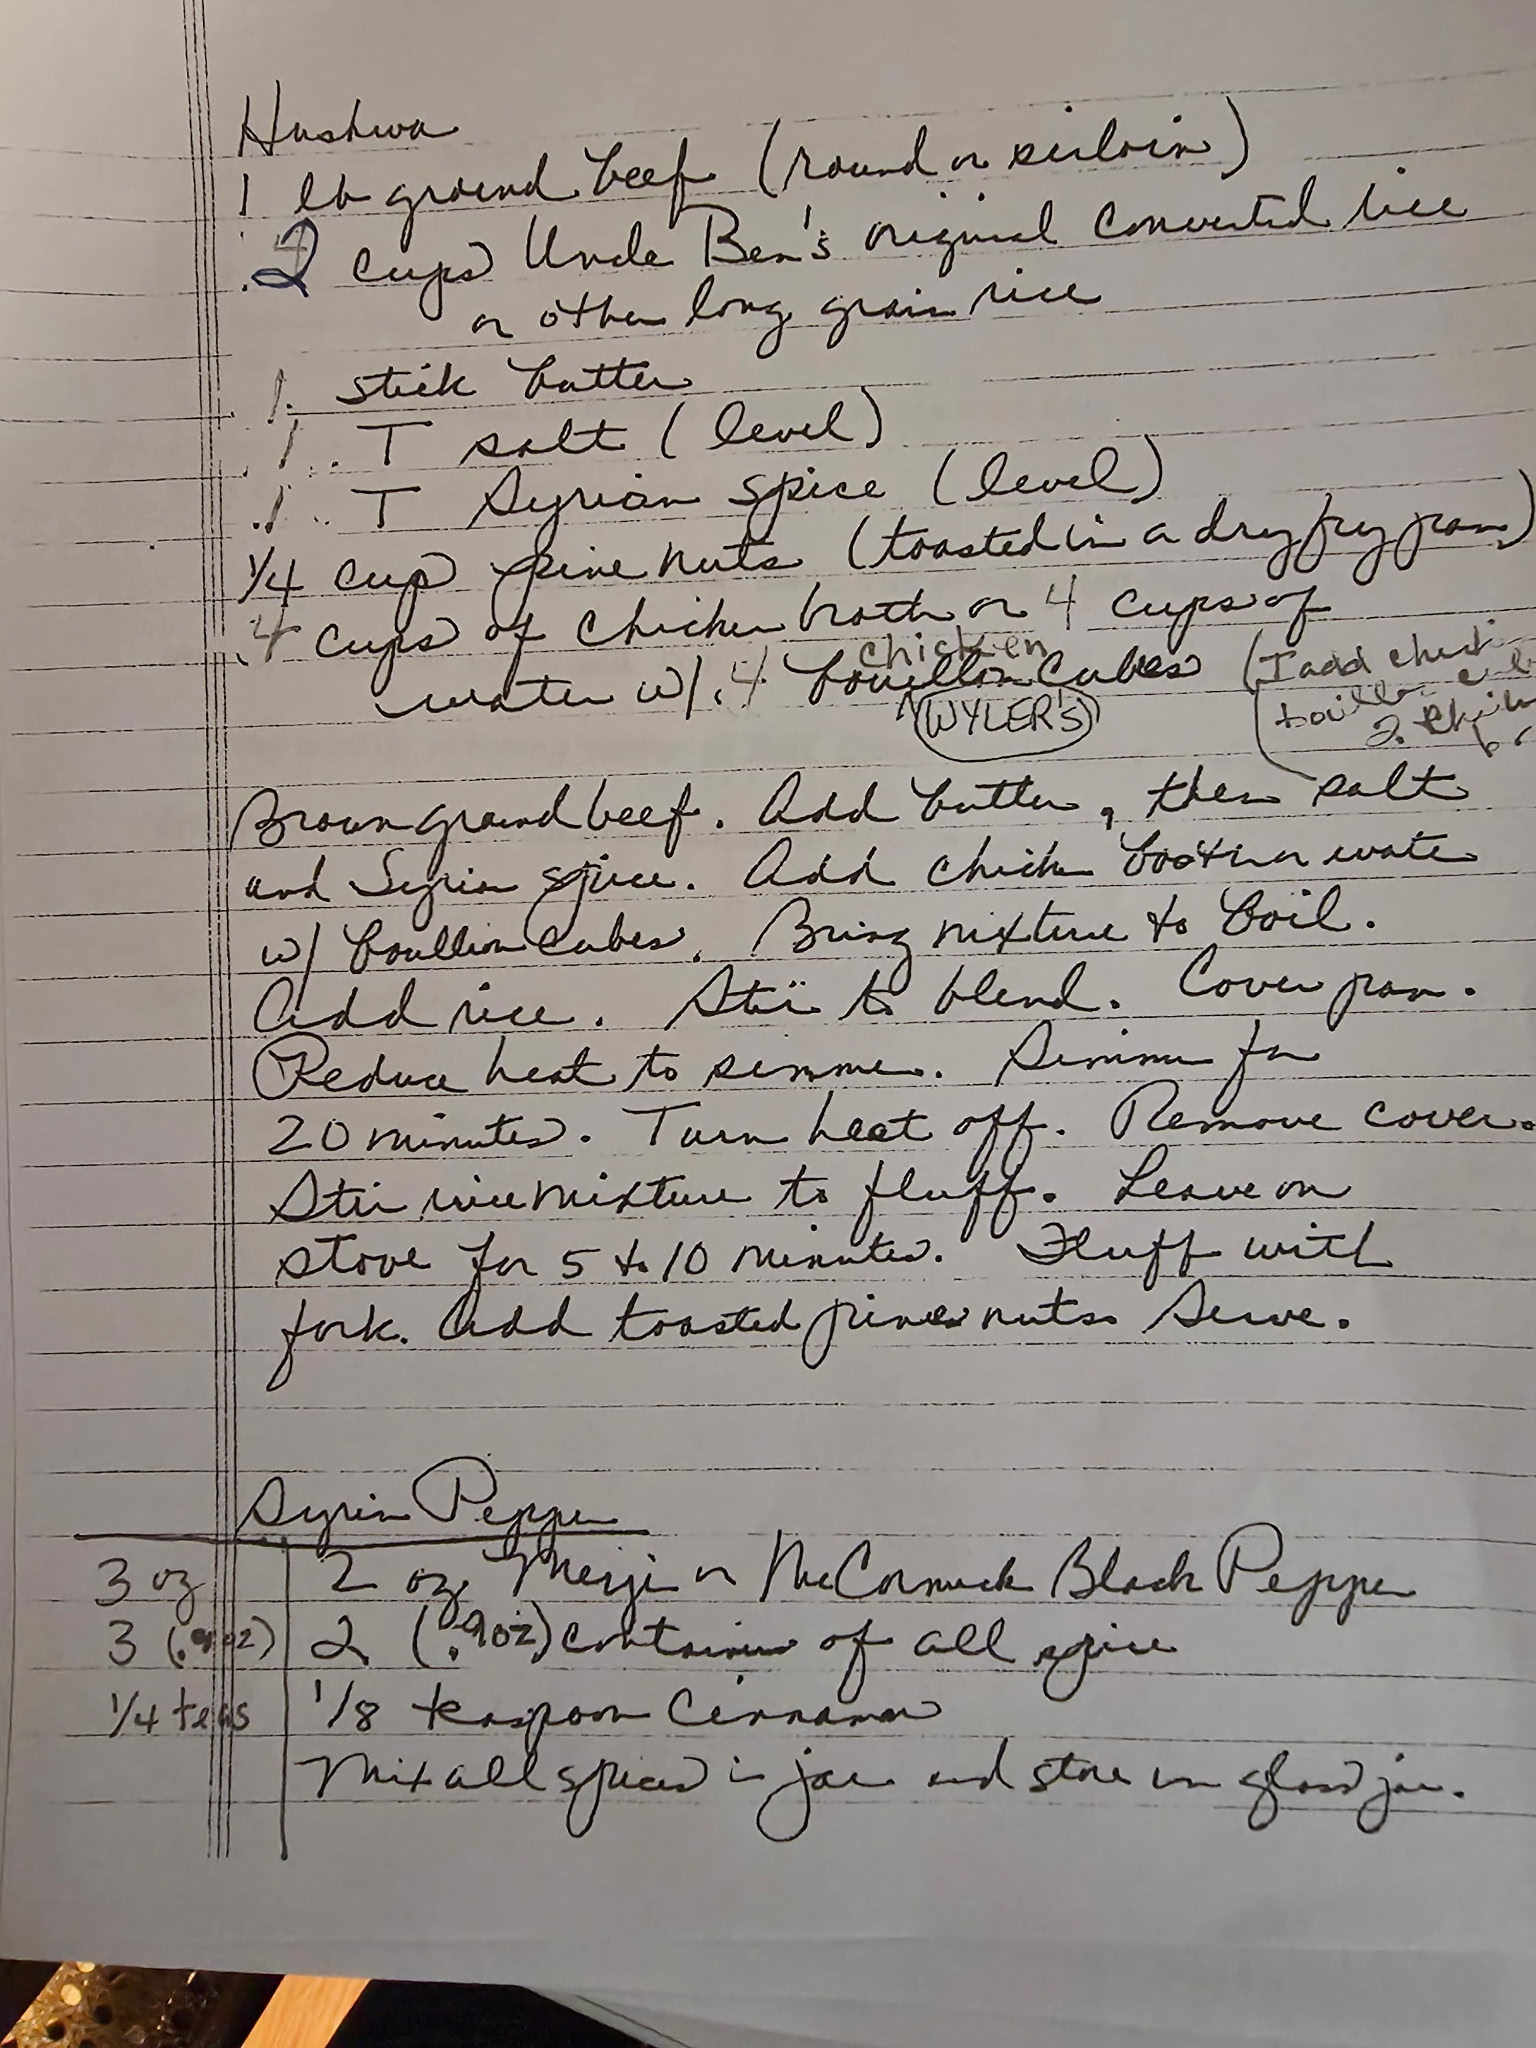 Hushwa
1 lb ground beef (round or sirloin)
2 cups Uncle Ben's original converted rice
or other long grain rice
1 stick butter
1 T salt (level)
1 T Syrian spice (level)
1/4 cup pine nuts (toasted in a dry fry pan)
4 cups of chicken broth or 4 cups of
chicken
water w/ 4 bouillon cubes (I add
WYLER'S
2
Brown ground beef. Add butter, then salt
and Syrian spice. Add chicken broth or water
w/ boullion cubes. Bring mixture to boil.
Add rice. Stir to blend. Cover pan.
Reduce heat to simmer. Simmer for
20 minutes. Turn heat off. Remove cover.
Stir rice mixture to fluff. Leave on
stove for 5 to 10 minutes. Fluff with
fork. Add toasted pine nuts. Serve.
Syrian Pepper
3 oz 2 oz Meiji or McCormick Black Pepper
3 (.9oz) 2 (.9oz) containers of all spice
1/4 teas 1/8 teaspoon Cinnamon
Mix all spices in jar and store in glass jar.